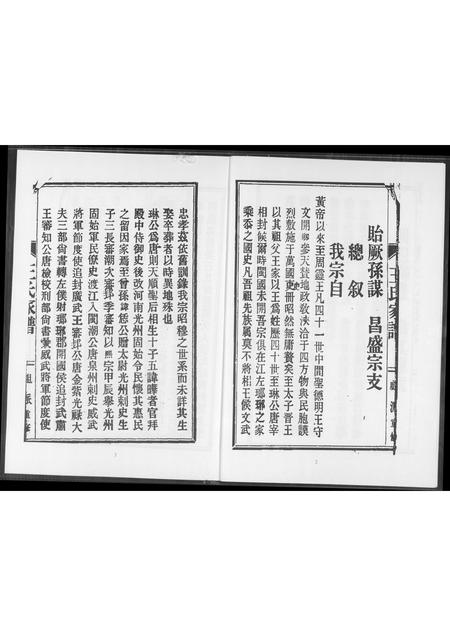 貽厥孫謀　昌盛宗支
總叙
我宗自
黃帝以來至周靈王凡四十一世中間聖德明王守
文開綱參天贊地政敎洽于四方物與民胞謨
烈敷施于萬國史冊昭然無庸贅矣至太子晉王
以其祖父王家以王爲姓歷四十世至琳公唐宰
相封候爾時閩國未開吾宗俱在江左瑯琊之家
乘忝之國史凡吾祖先族属莫不將相王候文武
忠孝茲依舊訓錄我宗昭穆之世系而未詳其生
娶卒葬者以時異地殊也
琳公爲唐則天順聖后相生十子五諱曄者官拜
殿中侍御史後改河南光州固始令民懷其惠民
之留因家焉至曾孫諱恁公贈太尉光州刺史生
子三長審潮次審邽季審知以熙宗甲辰擧光州
固始軍民僚史渡江入閩潮公唐泉州刺史威武
將軍節度使追封廣武王審邽公唐金紫光祿大
夫三部尙書轉左僕射瑯琊郡開國侯追封武肅
王審知公唐檢校刑部尙書兼威武將軍節度使
王氏家譜